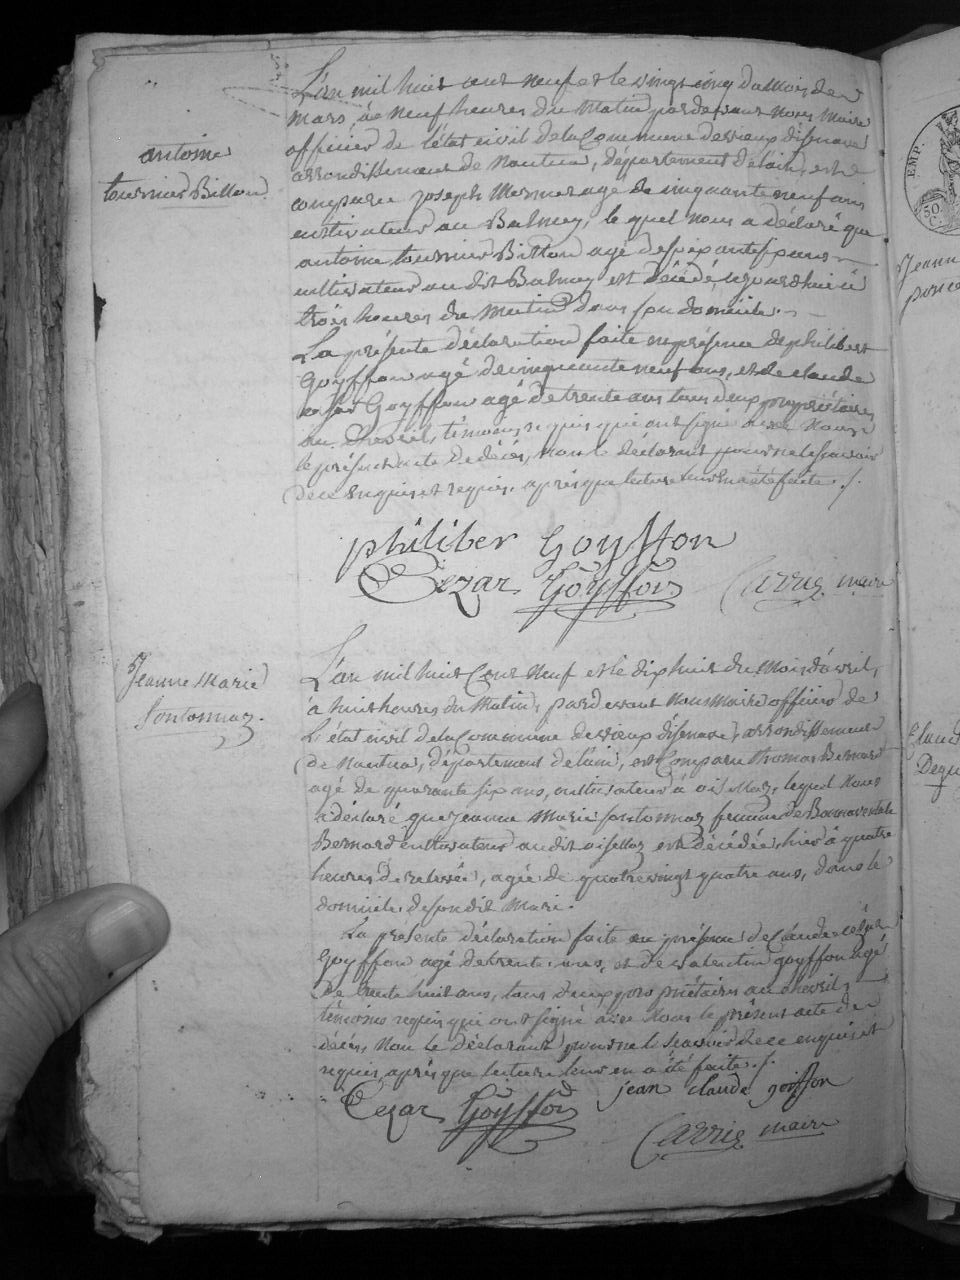 antoine
tournier Billon
L'an mil huit cent neuf et le vingt cinq du mois de
mars, à neuf heures du matin pardevant nous maire
officier de l'état civil de la Commune de vieux d'isenave
arrondissement de Nantua, département de l'ain, est
comparu joseph Mermer agé de cinquante neuf ans
cultivateur au Balmey, le quel nous a déclaré que
antoine tournier Billon agé de
cultivateur au dit Balmey est décédé cejourdhui à
trois heures du matin dans son domicile.
La présente déclaration faite en présence de philibert
Goyffon agé de cinquante neuf ans, et de claude
césar Goyffon agé de trente ans tous deux propriétaires
au Chevril, témoins requis qui ont signé avec Nous
le présent acte de décès, non le déclarant pour ne le savoir
de ce enquis et requis, après que lecture leur en a été faite ./.
philiber Goyffon
Cezar Goyffon Carrig maire
Jeanne Marie
sontonnaz.
L'an mil huit Cent Neuf et le dix huit du mois d'avril,
à huit heures du Matin, pardevant Nous Maire officier de
L'état civil de la Commune de vieux d'isenave, arrondissement
de Nantua, département de l'ain, est Comparu thomas Bernard
agé de quarante six ans, cultivateur à oisellaz, lequel Nous
a déclaré que jeanne Marie sontonnaz femme de Bonnaventure
Bernard cultivateur au dit oisellaz est décédée, hier à quatre
heures de relevée, agée de quatre vingt quatre ans, dans le
domicile de son dit Mari.
La présente déclaration faite en présence de Claude césar
Goyffon agé de trente ans, et de valentin goyffon agé
de trente huit ans, tous deux propriétaires au chevril,
témoins requis qui ont signé avec Nous le présent acte de
décès, Non Le Déclarant pour ne le Scavoir de ce enquis et
requis, après que lecture leur en a été faite ./.
jean claude goiffon
Cezar Goyffon
Carrig maire
EMP.
50
C.
Jeann
claud